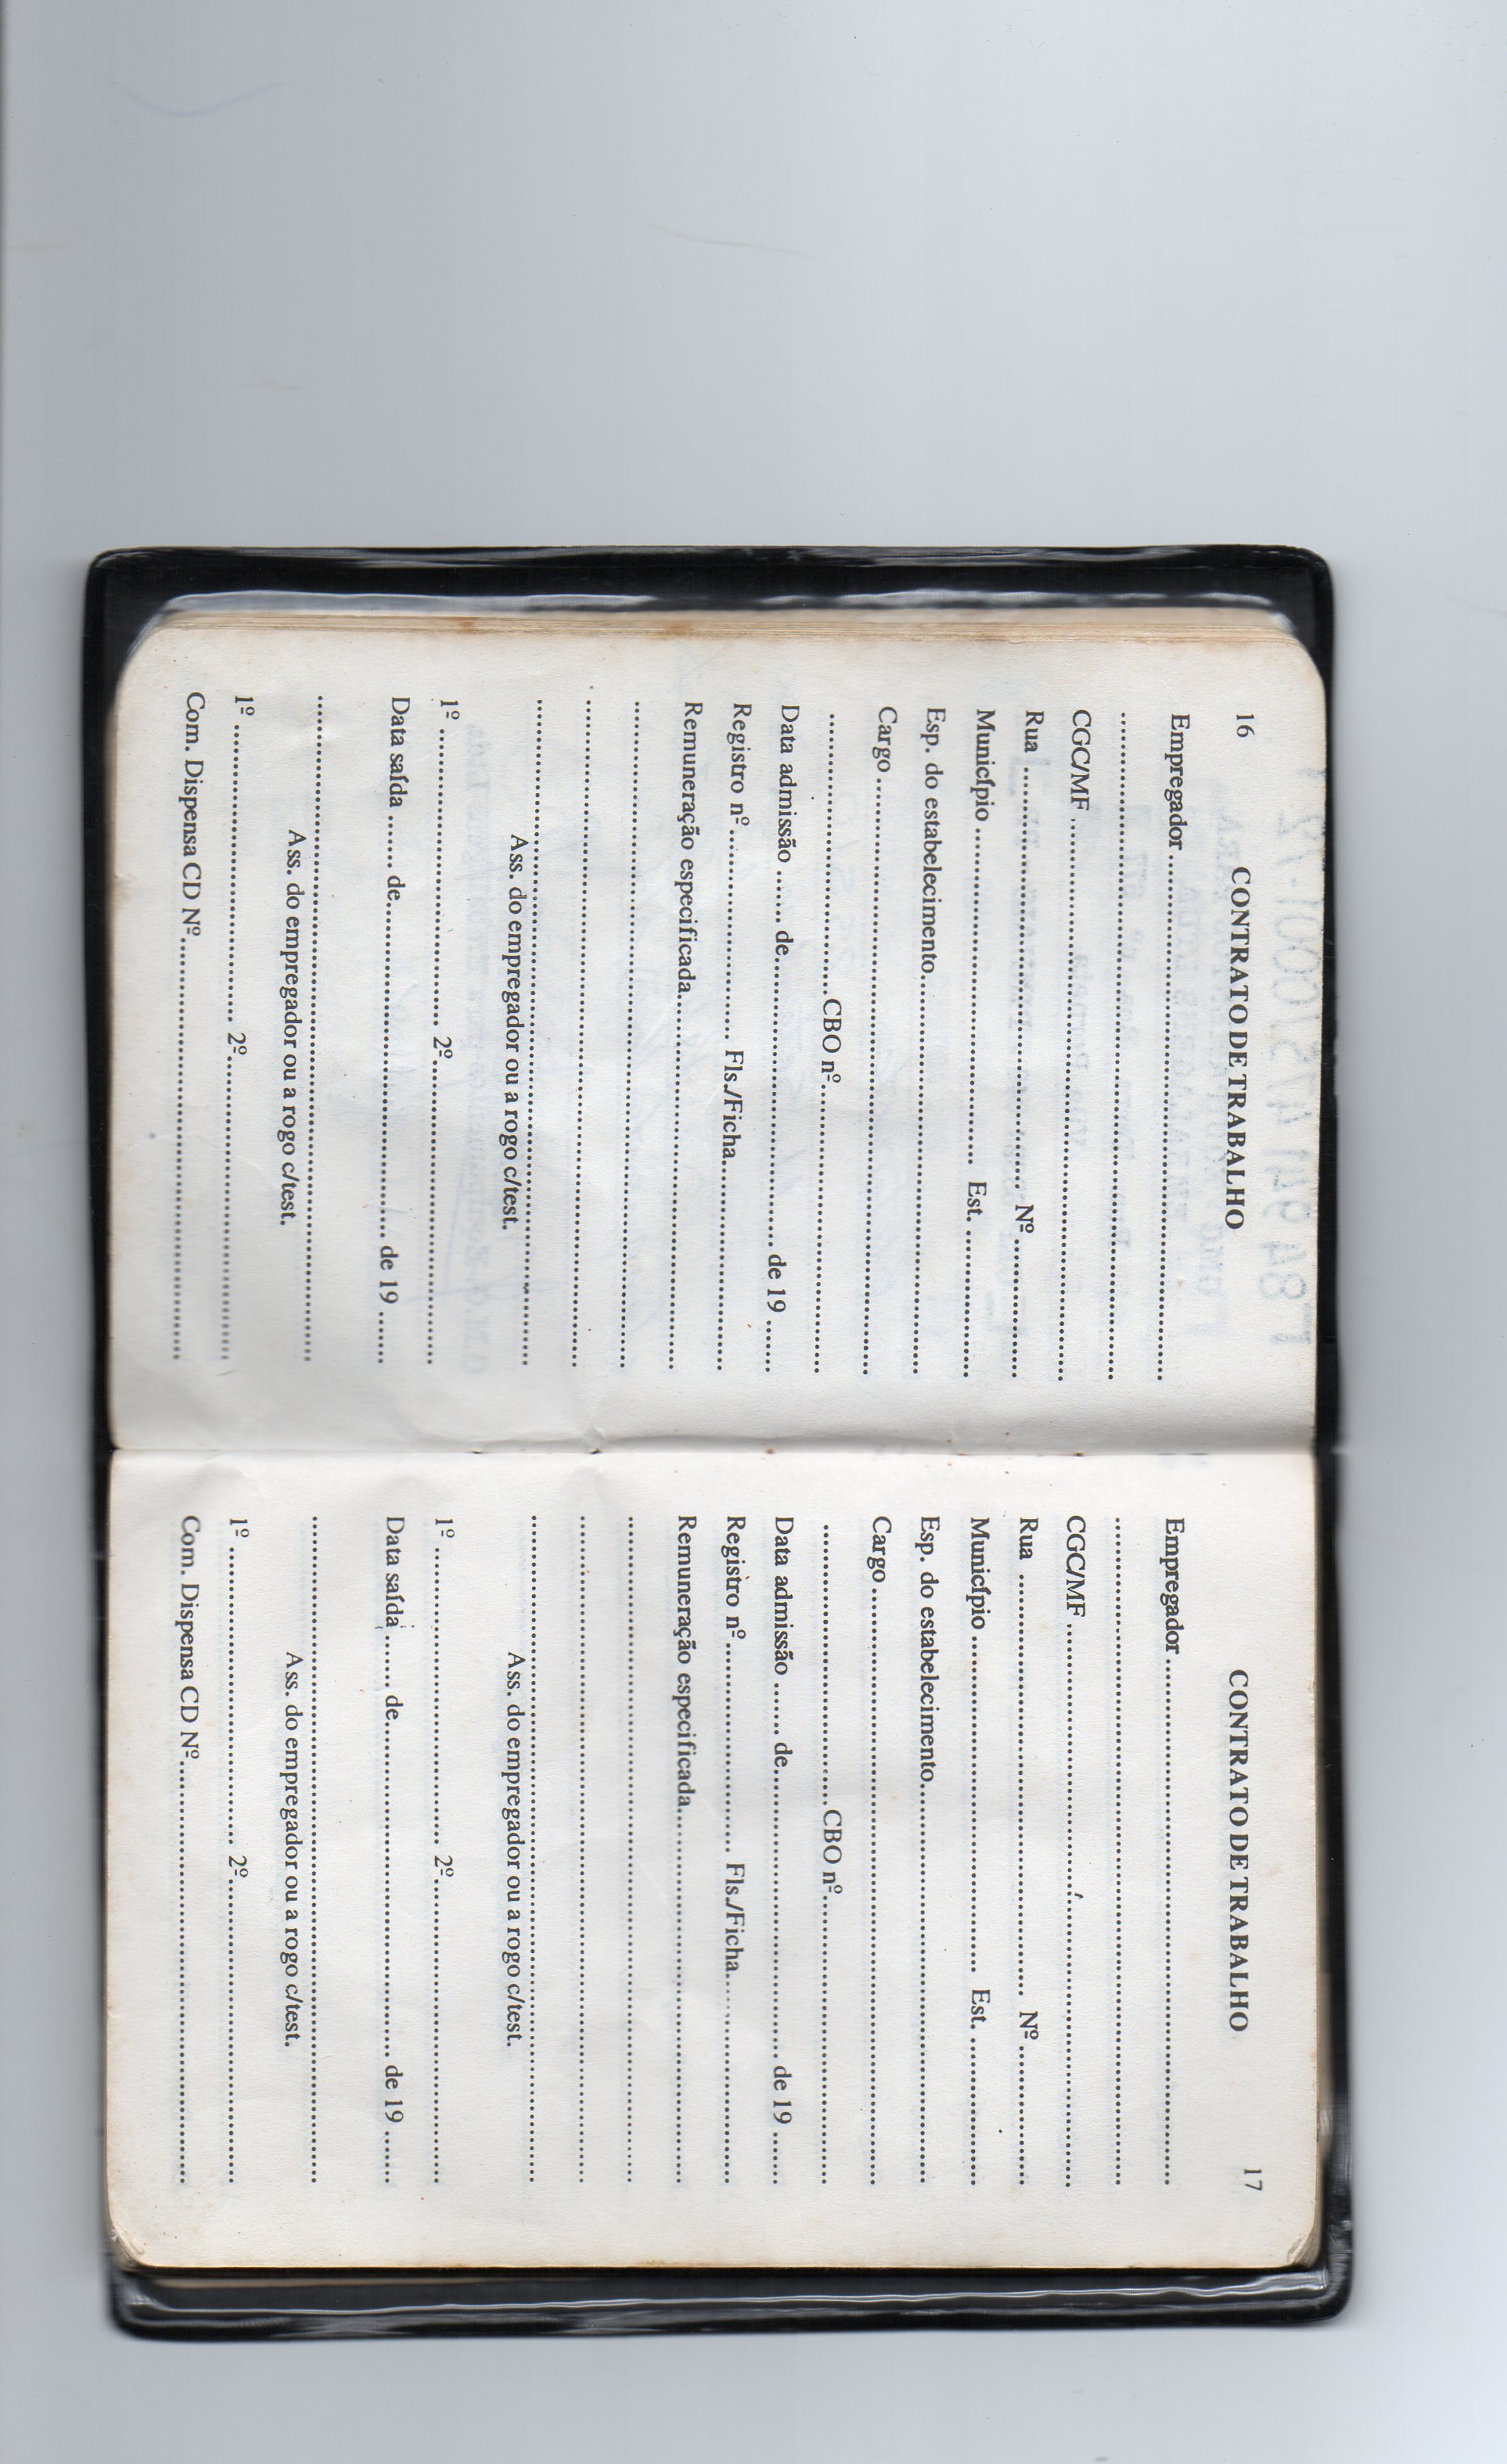 16
CONTRATO DE TRABALHO
Empregador ........................................
........................................
CGC/MF ........................................
Rua ........................................ Nº ............
Município ........................................ Est. ............
Esp. do estabelecimento ........................................
Cargo ........................................
........................................ CBO nº ........................................
Data admissão ...... de ........................................ de 19 ......
Registro nº ........................................ Fls./Ficha ........................................
Remuneração especificada ........................................
........................................
........................................
........................................
Ass. do empregador ou a rogo c/test.
1º ........................................ 2º ........................................
Data saída ...... de ........................................ de 19 ......
........................................
Ass. do empregador ou a rogo c/test.
1º ........................................ 2º ........................................
Com. Dispensa CD Nº ........................................
17
CONTRATO DE TRABALHO
Empregador ........................................
........................................
CGC/MF ........................................
Rua ........................................ Nº ............
Município ........................................ Est. ............
Esp. do estabelecimento ........................................
Cargo ........................................
........................................ CBO nº ........................................
Data admissão ...... de ........................................ de 19 ......
Registro nº ........................................ Fls./Ficha ........................................
Remuneração especificada ........................................
........................................
........................................
........................................
Ass. do empregador ou a rogo c/test.
1º ........................................ 2º ........................................
Data saída ...... de ........................................ de 19 ......
........................................
Ass. do empregador ou a rogo c/test.
1º ........................................ 2º ........................................
Com. Dispensa CD Nº ........................................